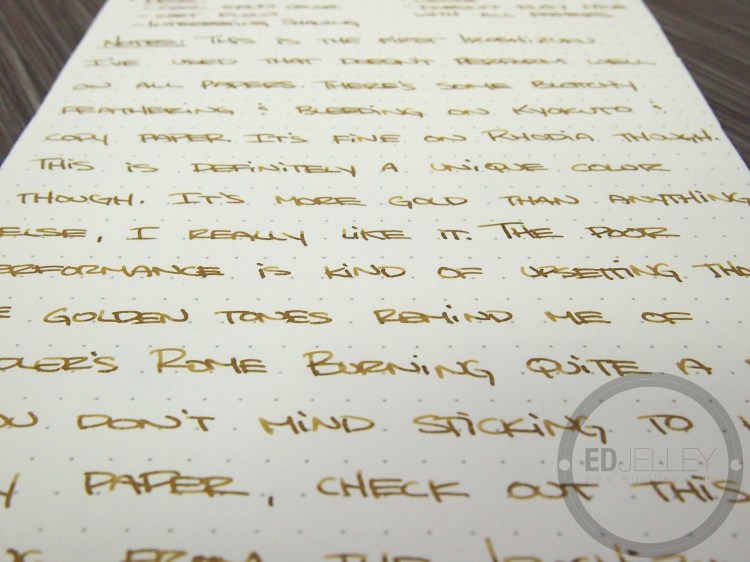 - Wet Flow
with all papers
- Interesting Shading
Notes: This is the first Iroshizuku
I've used that doesn't perform well
on all papers. There's some blotchy
feathering & bleeding on Kyokuto &
copy paper. It's fine on Rhodia though.
This is definitely a unique color
though. It's more gold than anything
else, I really like it. The poor
erformance is kind of upsetting, tho
e golden tones remind me of
dler's Rome Burning quite a
ou don't mind sticking to
y paper, check out this
from the
EDJELLEY